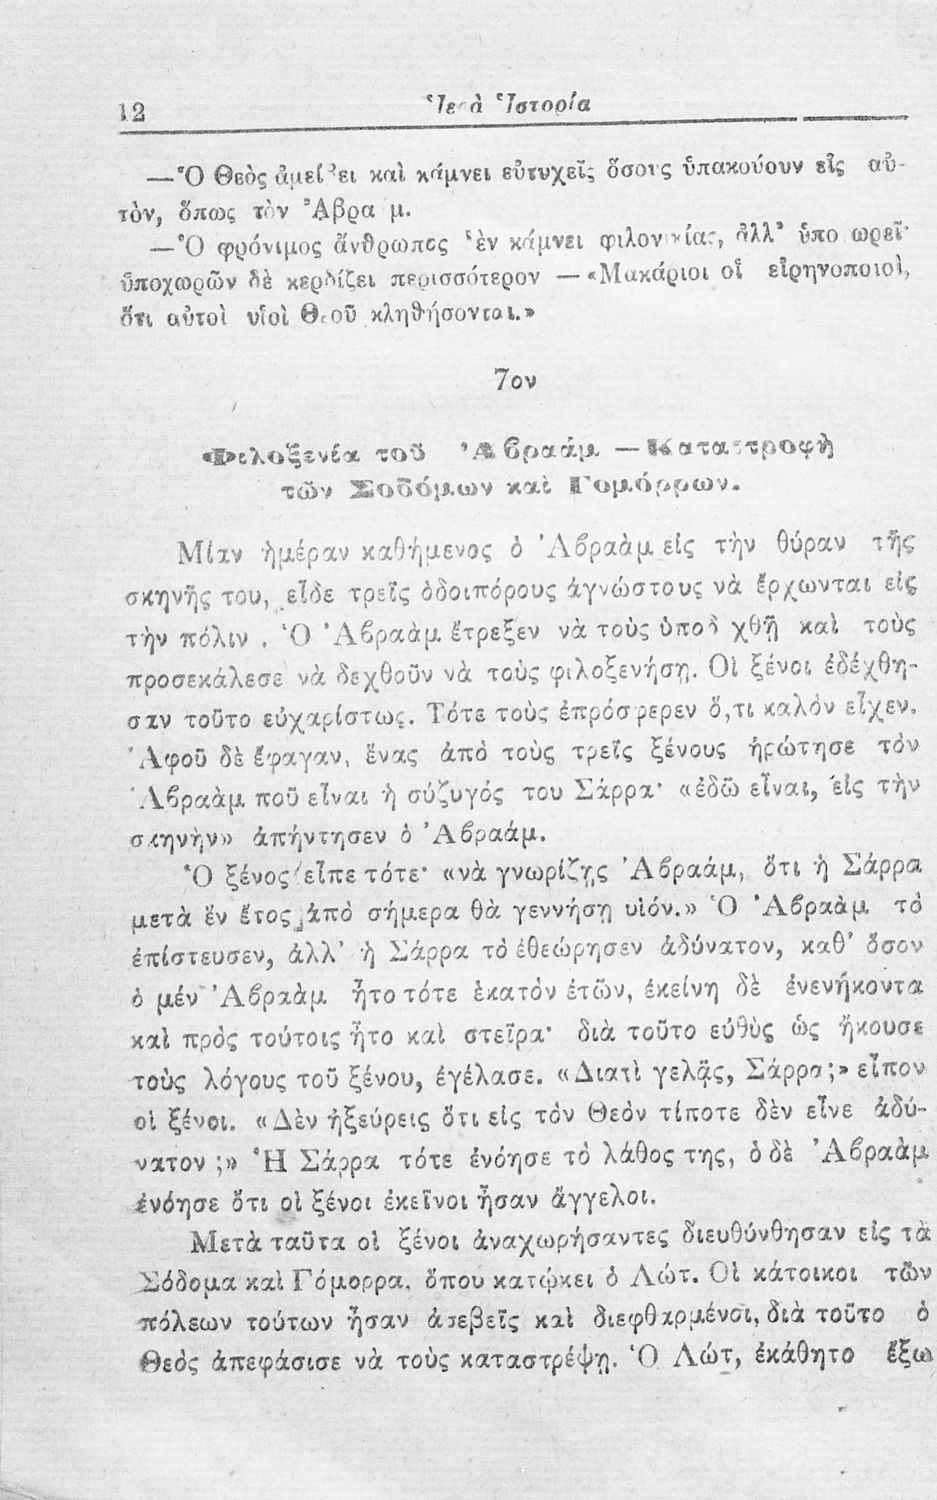 12
Ἱερὰ Ἱστορία
—Ὁ Θεὸς ἀμείβει καὶ κάμνει εὐτυχεῖς ὅσους ὑπακούουν εἰς αὐ-
τὸν, ὅπως τὸν Ἀβραάμ.
—Ὁ φρόνιμος ἄνθρωπος δὲν κάμνει φιλονικίας, ἀλλ' ὑποχωρεῖ·
ὑποχωρῶν δὲ κερδίζει περισσότερον —«Μακάριοι οἱ εἰρηνοποιοὶ,
ὅτι αὐτοὶ υἱοὶ Θεοῦ κληθήσονται.»
7ον
Φιλοξενία τοῦ Ἀβραάμ —Καταστροφὴ
τῶν Σοδόμων καὶ Γομόρρων.
Μίαν ἡμέραν καθήμενος ὁ Ἀβραὰμ εἰς τὴν θύραν τῆς
σκηνῆς του, εἶδε τρεῖς ὁδοιπόρους ἀγνώστους νὰ ἔρχωνται εἰς
τὴν πόλιν. Ὁ Ἀβραὰμ ἔτρεξεν νὰ τοὺς ὑποδεχθῇ καὶ τοὺς
προσεκάλεσε νὰ δεχθοῦν νὰ τοὺς φιλοξενήσῃ. Οἱ ξένοι ἐδέχθη-
σαν τοῦτο εὐχαρίστως. Τότε τοὺς ἐπρόσφερεν ὅ,τι καλὸν εἶχεν.
Ἀφοῦ δὲ ἔφαγαν, ἕνας ἀπὸ τοὺς τρεῖς ξένους ἠρώτησε τὸν
Ἀβραὰμ ποῦ εἶναι ἡ σύζυγός του Σάρρα· «ἐδῶ εἶναι, εἰς τὴν
σκηνὴν» ἀπήντησεν ὁ Ἀβραάμ.
Ὁ ξένος εἶπε τότε· «νὰ γνωρίζῃς Ἀβραάμ, ὅτι ἡ Σάρρα
μετὰ ἓν ἔτος ἀπὸ σήμερα θὰ γεννήσῃ υἱόν.» Ὁ Ἀβραὰμ τὸ
ἐπίστευσεν, ἀλλ' ἡ Σάρρα τὸ ἐθεώρησεν ἀδύνατον, καθ' ὅσον
ὁ μέν Ἀβραὰμ ἦτο τότε ἑκατὸν ἐτῶν, ἐκείνη δὲ ἐνενήκοντα
καὶ πρὸς τούτοις ἦτο καὶ στεῖρα· διὰ τοῦτο εὐθὺς ὡς ἤκουσε
τοὺς λόγους τοῦ ξένου, ἐγέλασε. «Διατὶ γελᾷς, Σάρρα;» εἶπον
οἱ ξένοι. «Δὲν ἠξεύρεις ὅτι εἰς τὸν Θεὸν τίποτε δὲν εἶνε ἀδύ-
νατον ;» Ἡ Σάρρα τότε ἐνόησε τὸ λάθος της, ὁ δὲ Ἀβραὰμ
ἐνόησε ὅτι οἱ ξένοι ἐκεῖνοι ἦσαν ἄγγελοι.
Μετὰ ταῦτα οἱ ξένοι ἀναχωρήσαντες διευθύνθησαν εἰς τὰ
Σόδομα καὶ Γόμορρα, ὅπου κατῴκει ὁ Λώτ. Οἱ κάτοικοι τῶν
πόλεων τούτων ἦσαν ἀσεβεῖς καὶ διεφθαρμένοι, διὰ τοῦτο ὁ
Θεὸς ἀπεφάσισε νὰ τοὺς καταστρέψῃ. Ὁ Λώτ, ἐκάθητο ἔξω